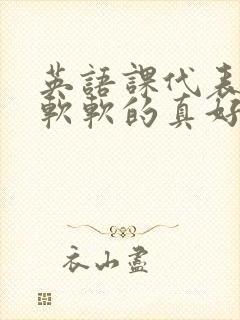 英語課代表
軟軟的真好
衣山盡